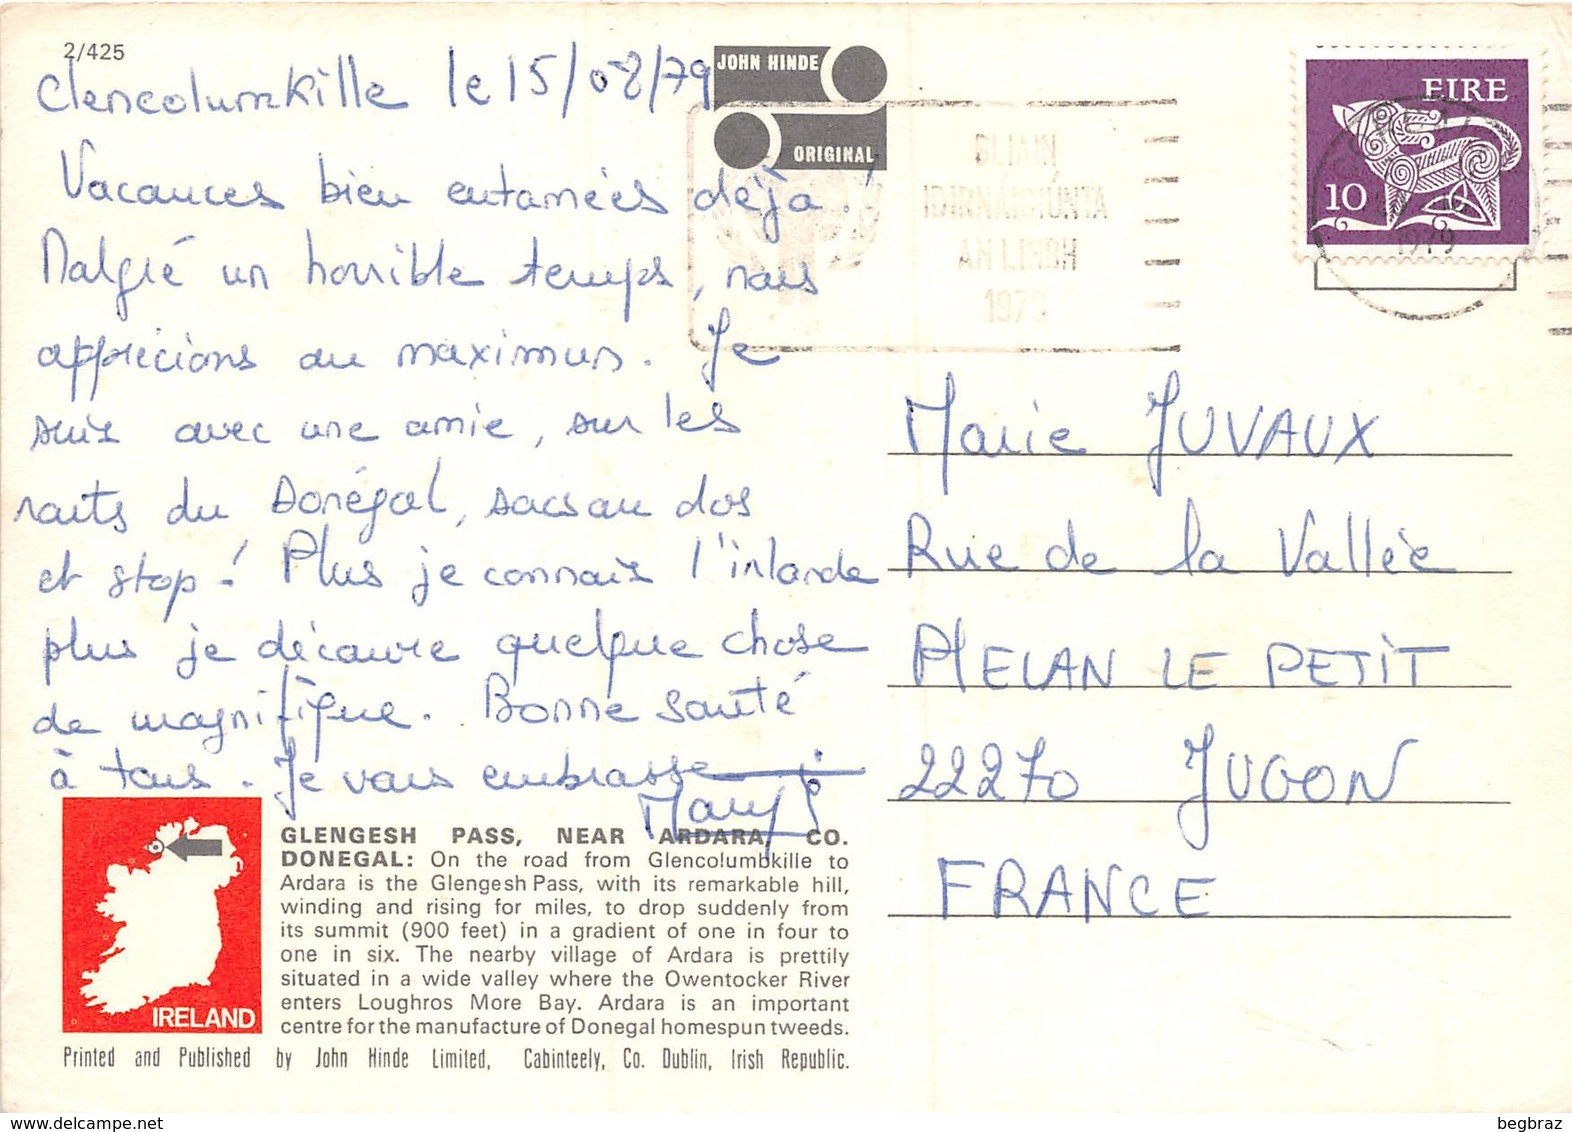 2/425
JOHN HINDE
ORIGINAL
Glencolumkille le 15/08/79
Vacances bien entamées déjà !
Malgré un horrible temps, nous
apprécions au maximum. Je
suis avec une amie, sur les
routes du Donégal, sacs au dos
et stop ! Plus je connais l'irlande
plus je découvre quelque chose
de magnifique. Bonne santé
à tous. Je vous embrasse
GLIAIN
IDIRNÁISIÚNTA
AN LINBH
1979
EIRE
10
1979
Marie JUVAUX
Rue de la Vallée
PLELAN LE PETIT
22270 JUGON
FRANCE
GLENGESH PASS, NEAR ARDARA, CO.
DONEGAL: On the road from Glencolumbkille to
Ardara is the Glengesh Pass, with its remarkable hill,
winding and rising for miles, to drop suddenly from
its summit (900 feet) in a gradient of one in four to
one in six. The nearby village of Ardara is prettily
situated in a wide valley where the Owentocker River
enters Loughros More Bay. Ardara is an important
centre for the manufacture of Donegal homespun tweeds.
IRELAND
Printed and Published by John Hinde Limited, Cabinteely, Co. Dublin, Irish Republic.
begbraz